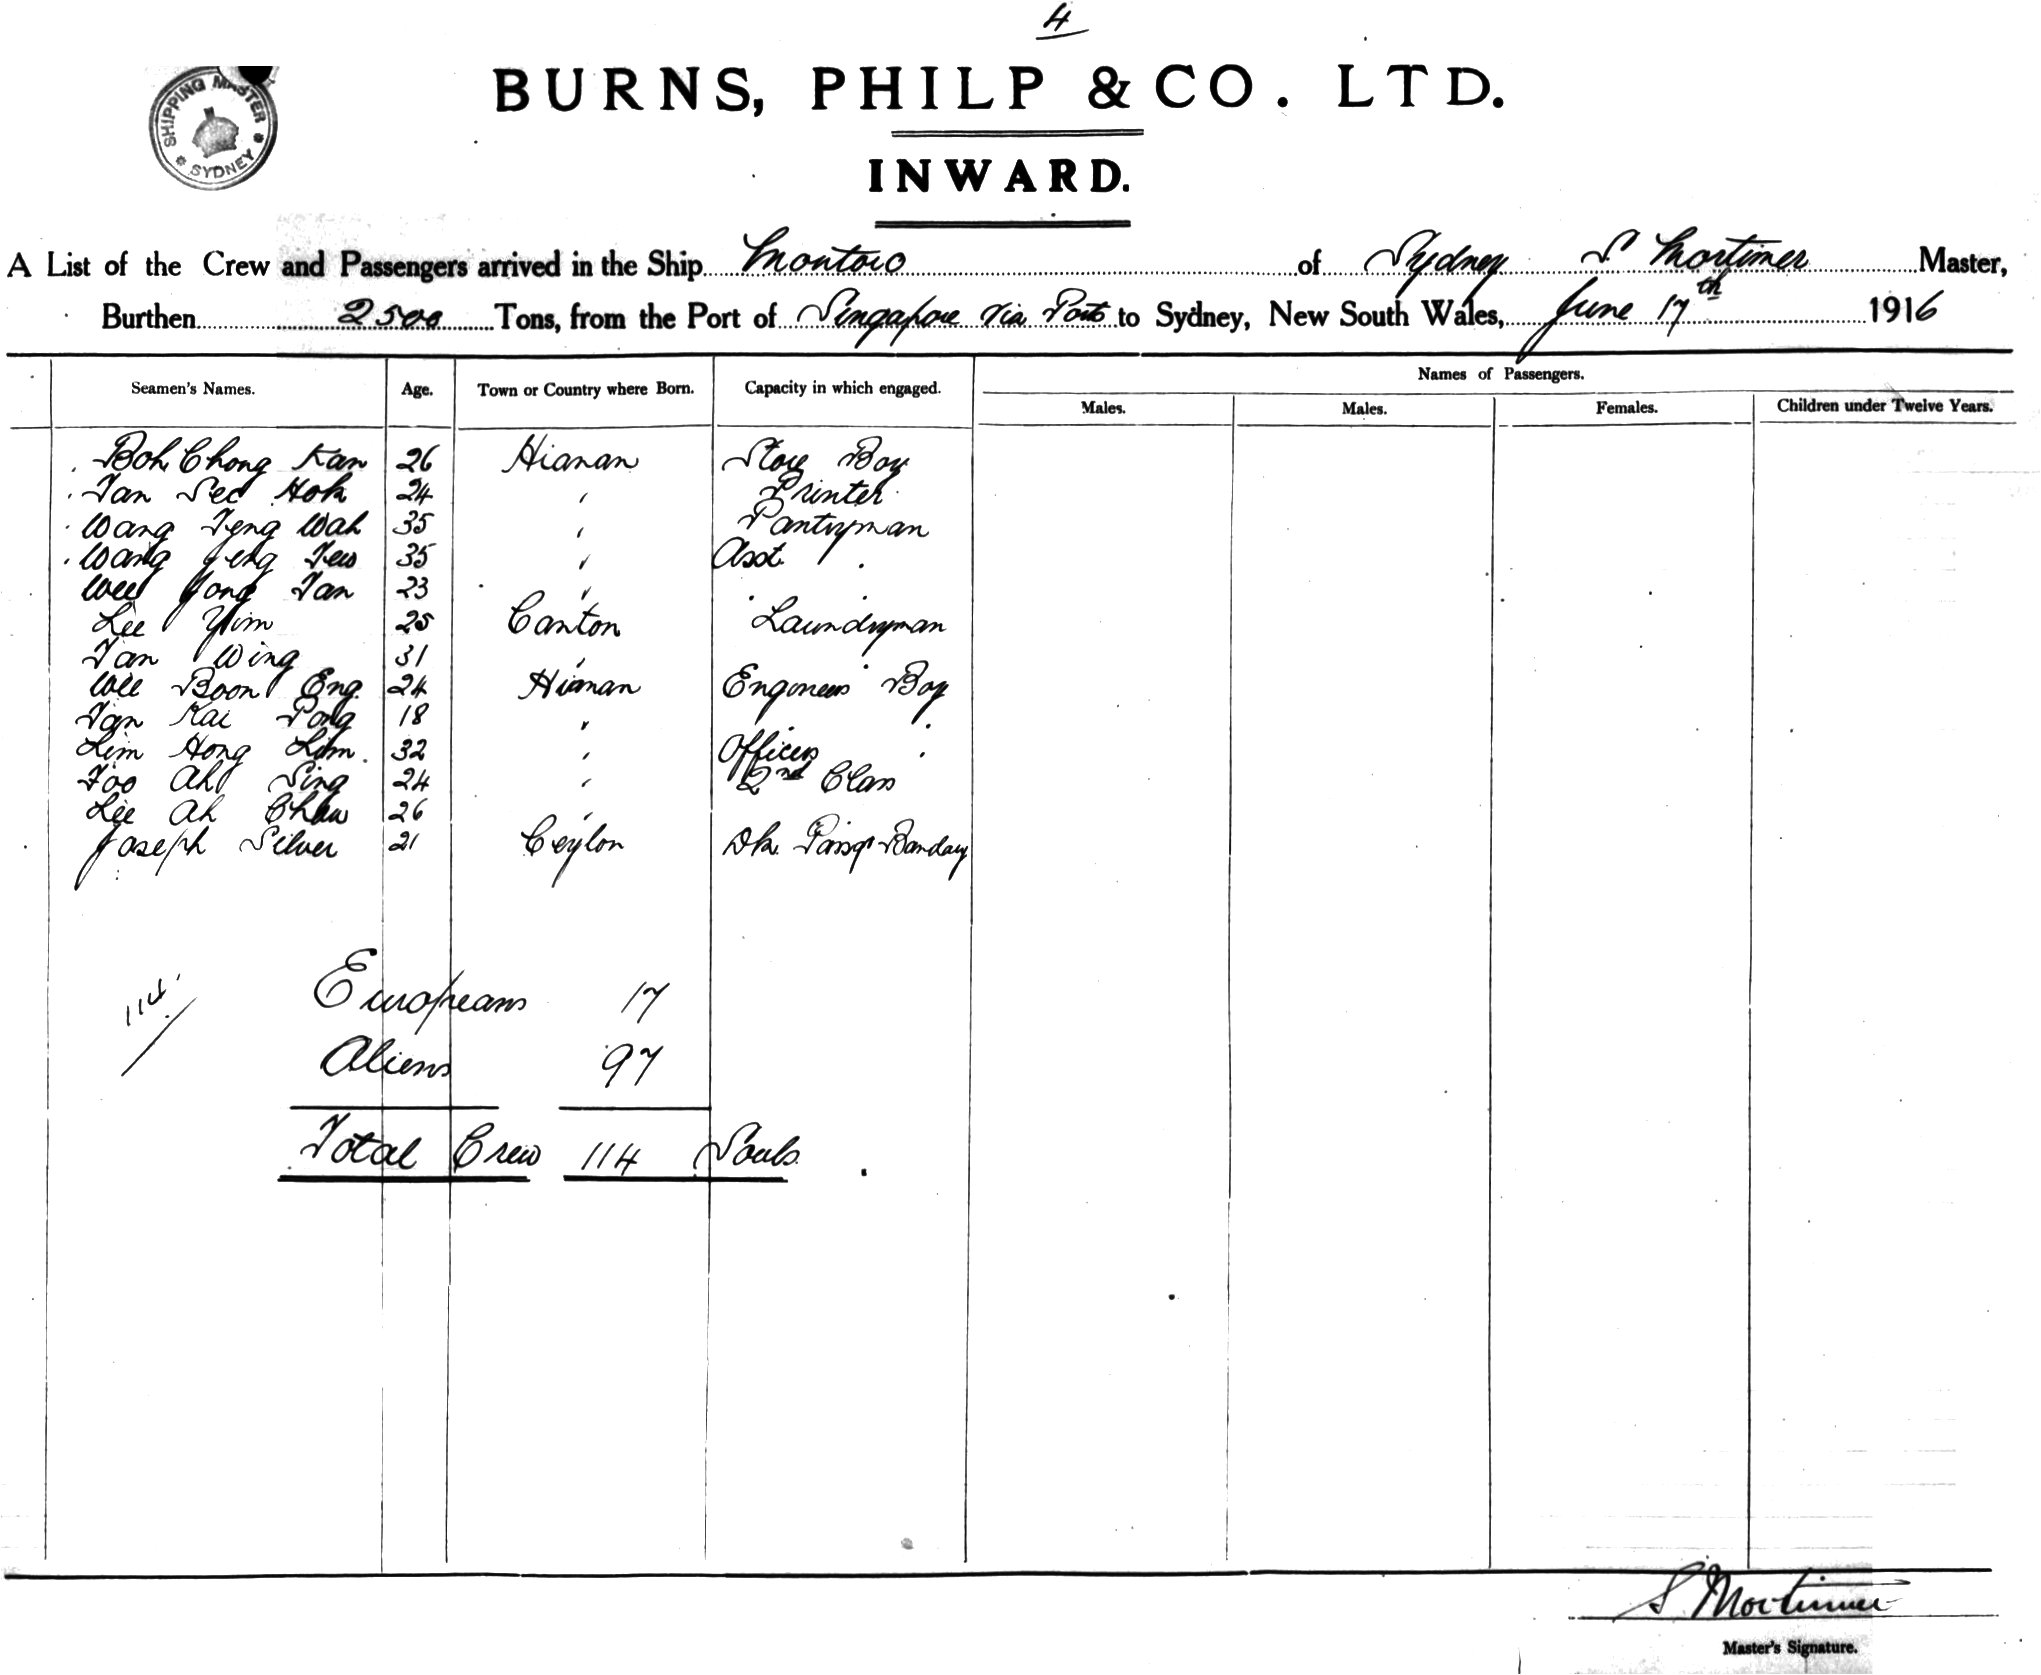 4
SHIPPING MASTER
SYDNEY
BURNS, PHILP & CO. LTD.
INWARD.
A List of the Crew and Passengers arrived in the Ship Montoro of Sydney S Mortimer Master,
Burthen 2500 Tons, from the Port of Singapore via Ports to Sydney, New South Wales, June 17th 1916
Names of Passengers.
Seamen's Names. Age. Town or Country where Born. Capacity in which engaged. Males. Males. Females. Children under Twelve Years.
Boh Chong Kan 26 Hianan Store Boy
Tan See Hok 24 " Printer
Wang Teng Wah 35 " Pantryman
Wang Teng Tew 35 " Asst. "
Wee Yong Tan 23 " " "
Lee Yim 25 Canton Laundryman
Tan Wing 31 " "
Wee Boon Eng 24 Hianan Engineers Boy
Tan Kai Pong 18 " "
Lim Hong Lim 32 " Officers "
Foo Ah Sing 24 " 2nd Class
Lee Ah Chew 26 "
Joseph Silver 21 Ceylon Dk. Passgr Bandary
Europeans 17
114
Aliens 97
Total Crew 114 Souls
S Mortimer
Master's Signature.